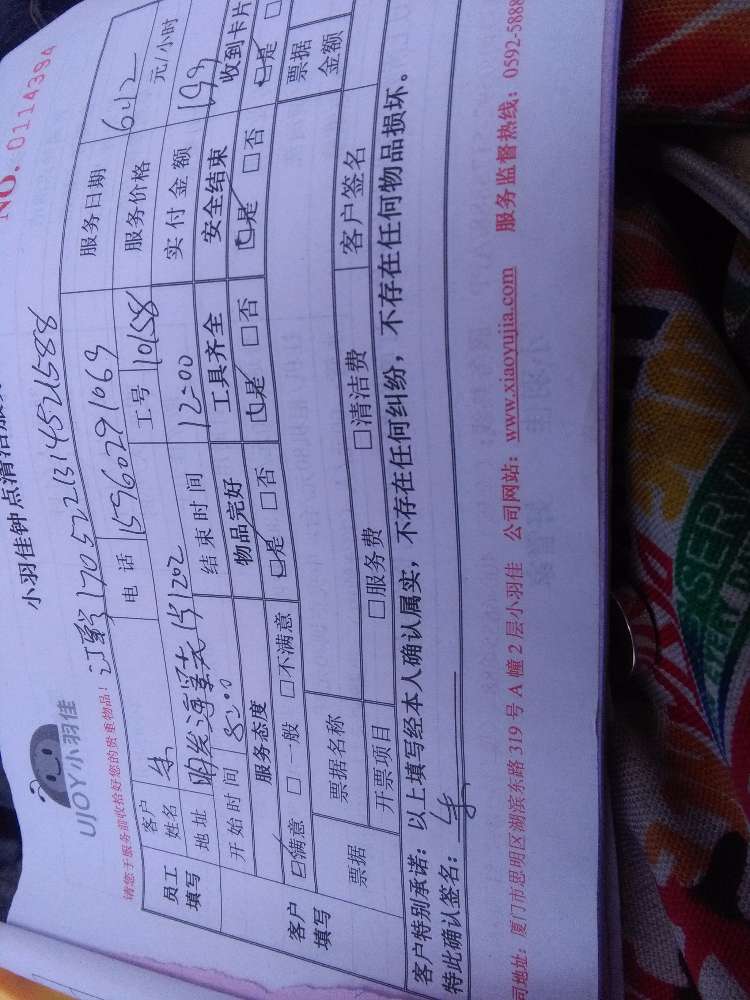 小羽佳钟点清洁服务
NO. 0114394
UJOY小羽佳
请您于服务前收拾好您的贵重物品！
订单 170522131452588
员工填写
客户姓名 朱 电话 15960291069 服务日期 6.12
地址 工号 10158 服务价格 元/小时
开始时间 8:00 结束时间 12:00 实付金额 199
客户填写
服务态度 物品完好 工具齐全 安全结束 收到卡片
☑满意 □一般 □不满意 ☑是 □否 ☑是 □否 ☑是 □否 ☑是 □
票据 票据名称 票据金额
开票项目 □服务费 □清洁费 客户签名
客户特别承诺：以上填写经本人确认属实，不存在任何纠纷，不存在任何物品损坏。
特此确认签名：朱
司地址：厦门市思明区湖滨东路 319 号 A 幢 2 层小羽佳 公司网站：www.xiaoyujia.com 服务监督热线：0592-5888